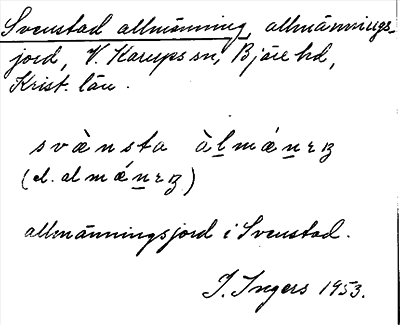 Svenstad allmänning, allmännings-
jord, V. Karups sn, Bjäre hd,
Krist. län.
svànsta àlmánɪŋ
(el. almánɪŋ)
allmänningsjord i Svenstad.
I. Ingers 1953.